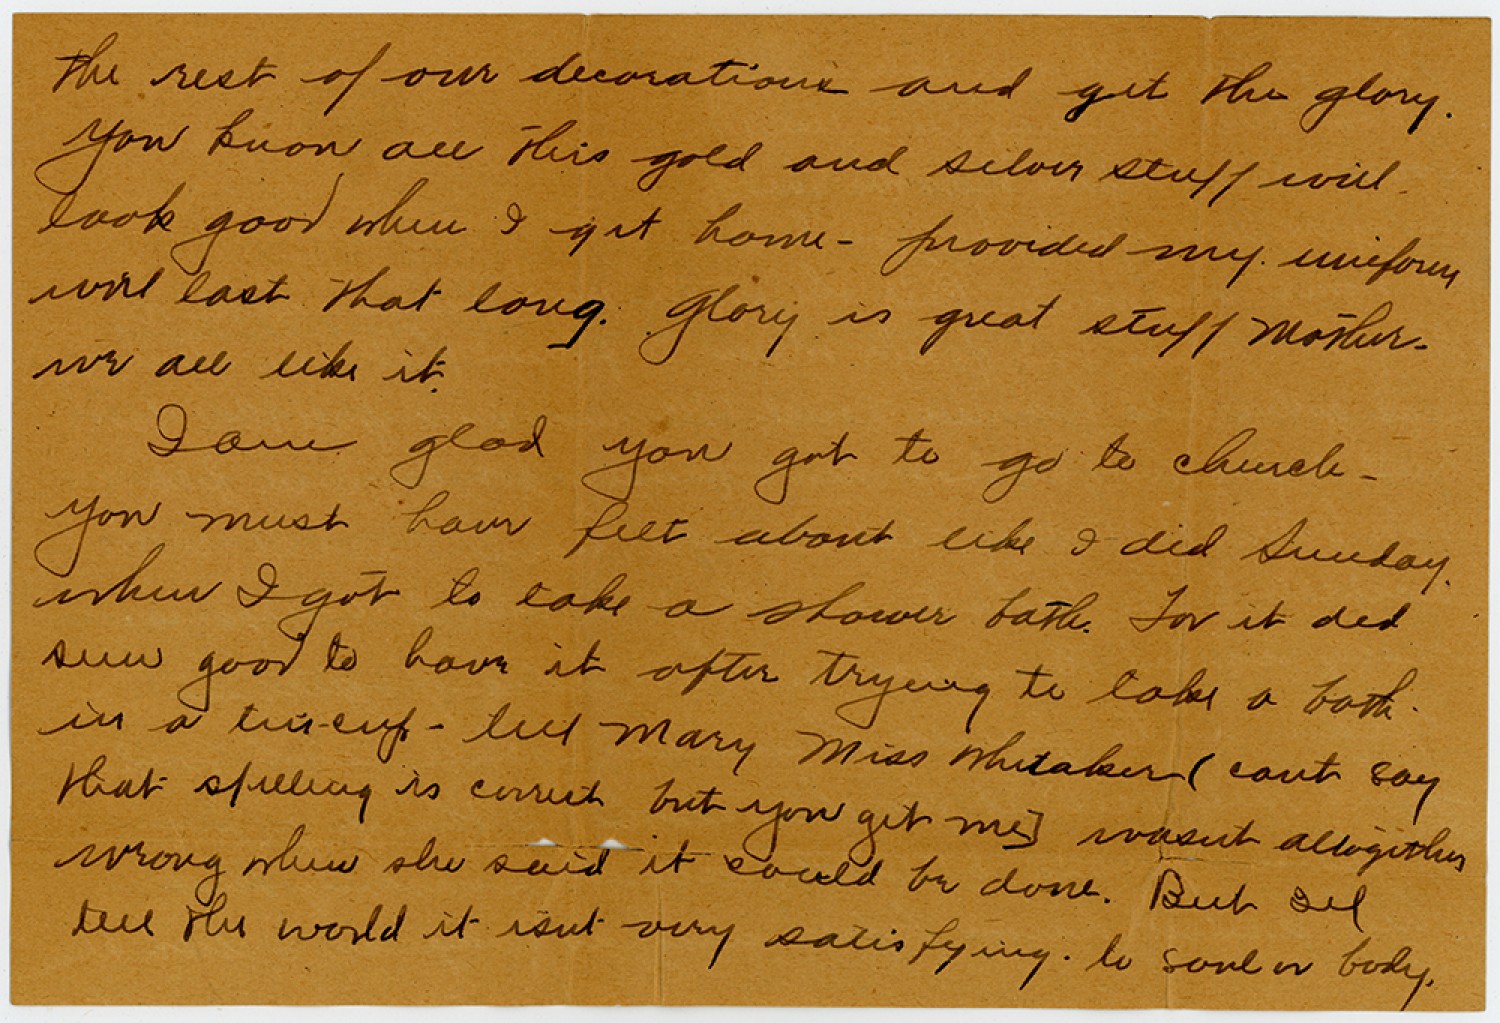 the rest of our decorations and get the glory.
You know all this gold and silver stuff will
look good when I get home - provided my uniform
will last that long. Glory is great stuff Mother -
we all like it.
I am glad you got to go to church -
You must have felt about like I did Sunday.
when I got to take a shower bath. For it did
seem good to have it after trying to take a bath
in a tin-cup - tell Mary Miss Whitaker (cant say
that spelling is correct but you get me] wasnt altogether
wrong when she said it could be done. But Ill
tell the world it isnt very satisfying. to soul or body.